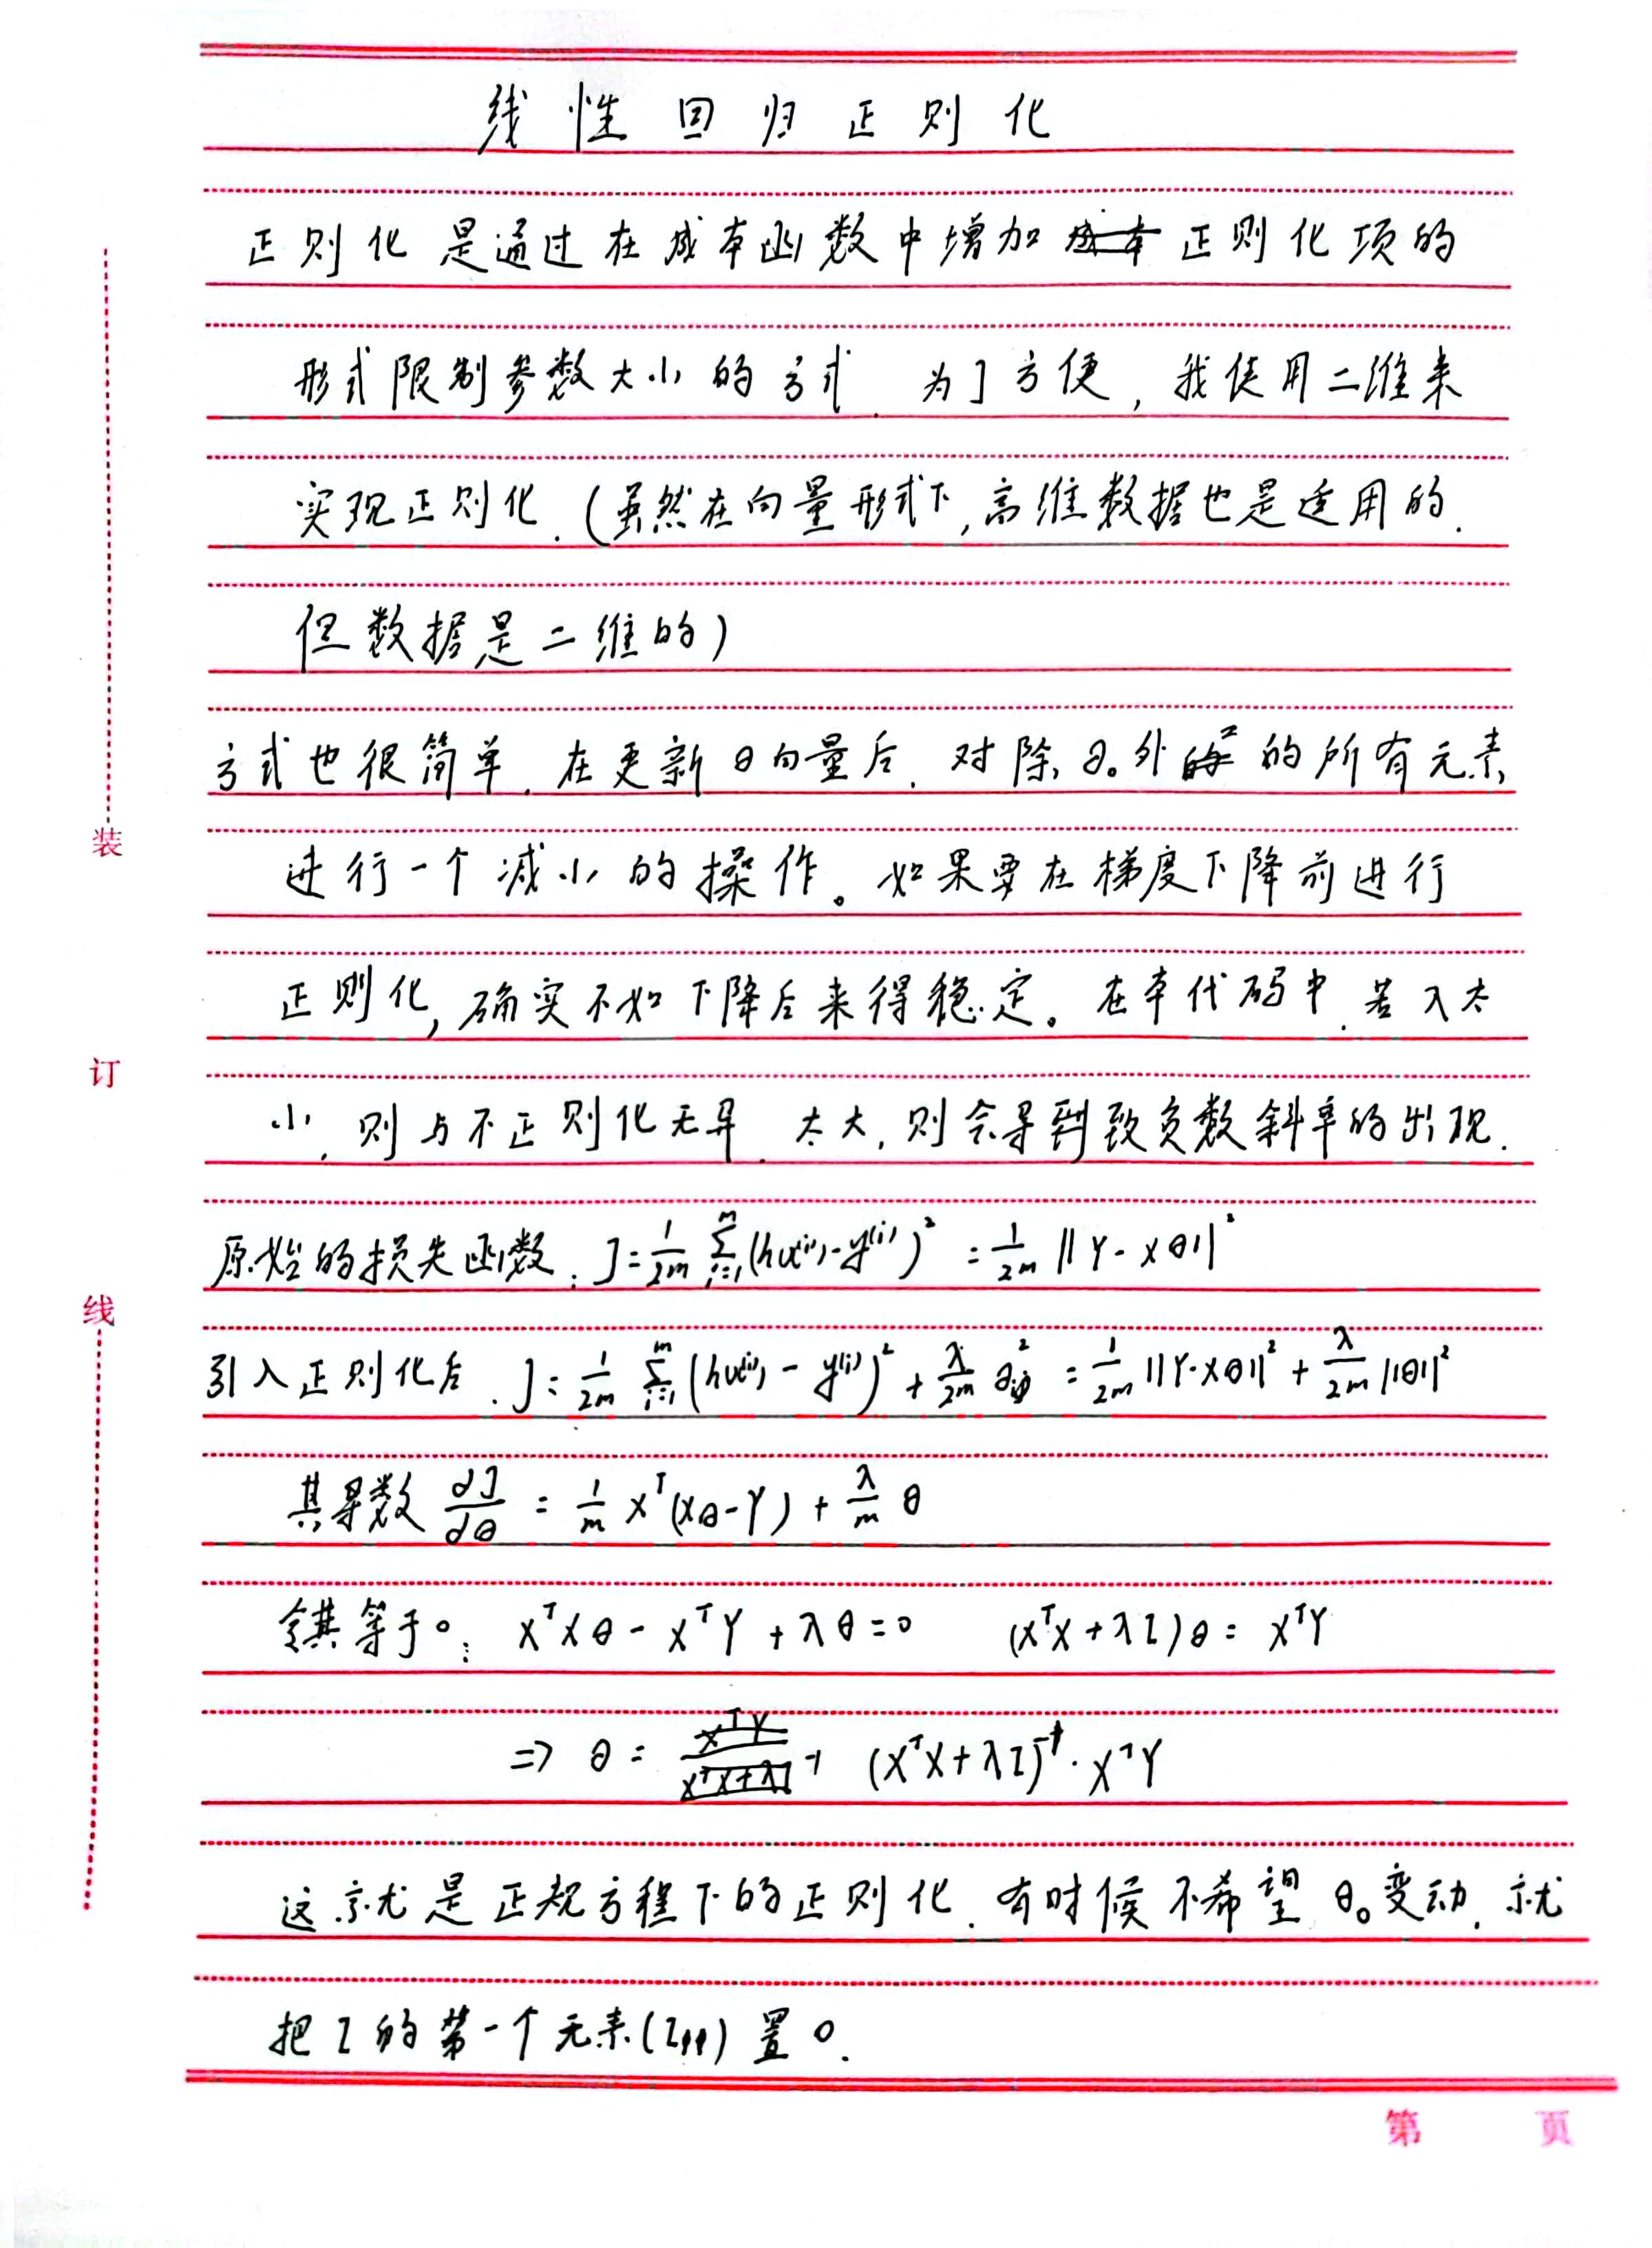 线性回归正则化
正则化是通过在成本函数中增加正则化项的
形式限制参数大小的方式.为了方便,我使用二维来
实现正则化.(虽然在向量形式下,高维数据也是适用的.
但数据是二维的)
方式也很简单.在更新θ向量后.对除θ₀外的所有元素
进行一个减小的操作。如果要在梯度下降前进行
正则化,确实不如下降后来得稳定。在本代码中.若λ太
小,则与不正则化无异.太大,则会导致负数斜率的出现.
原始的损失函数:J=1/2m Σᵢ₌₁ᵐ(h(x⁽ⁱ⁾)-y⁽ⁱ⁾)²=1/2m ||Y-Xθ||²
引入正则化后.J=1/2m Σᵢ₌₁ᵐ(h(x⁽ⁱ⁾)-y⁽ⁱ⁾)²+λ/2m θ²=1/2m ||Y-Xθ||²+λ/2m ||θ||²
其导数 dJ/dθ=1/m Xᵀ(Xθ-Y)+λ/m θ
令其等于0: XᵀXθ-XᵀY+λθ=0 (XᵀX+λI)θ=XᵀY
=> θ= (XᵀX+λI)⁻¹·XᵀY
这就是正规方程下的正则化.有时候不希望θ₀变动.就
把I的第一个元素(I₁₁)置0.
装
订
线
第 页